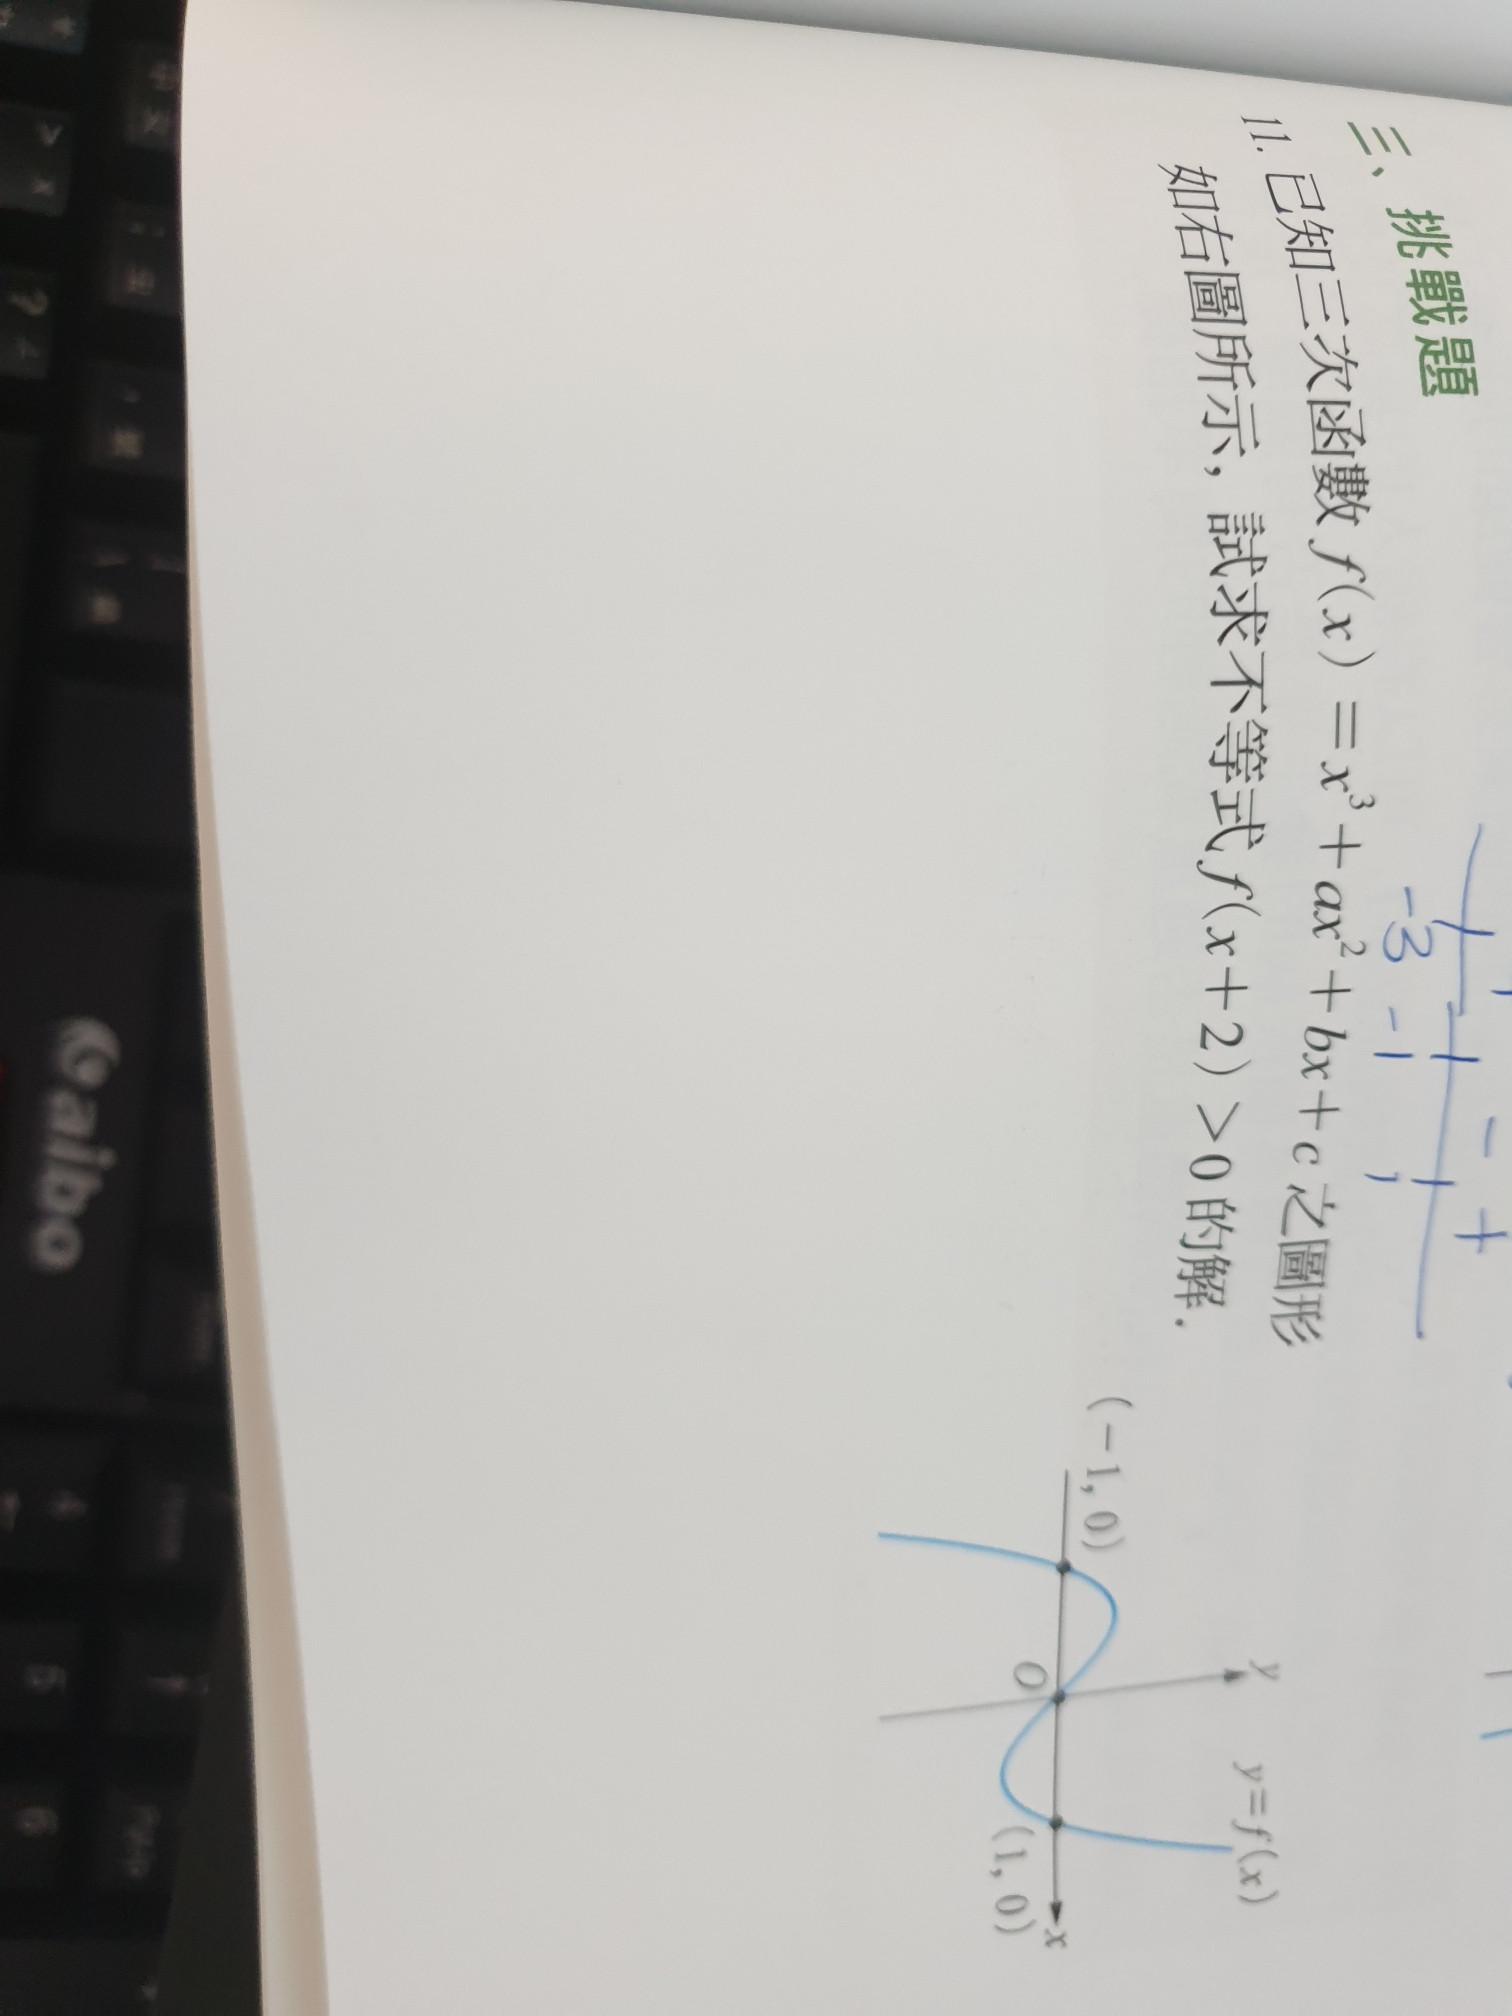 三、挑戰題
11. 已知三次函數 f(x)=x³+ax²+bx+c 之圖形
如右圖所示，試求不等式 f(x+2)>0 的解．
- +
-3 -1 1
y
y=f(x)
(-1, 0)
O
x
(1, 0)
aibo